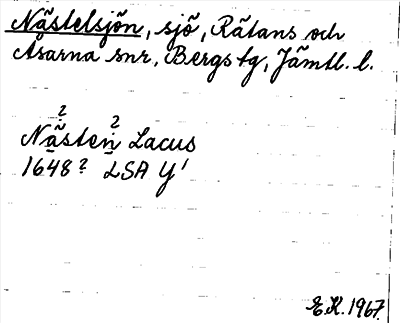 Nästelsjön, sjö, Rätans och
Åsarna snr, Bergs tg, Jämtl. l.
? 2
Nästen Lacus
1648? LSA Y¹
E.K. 1967.